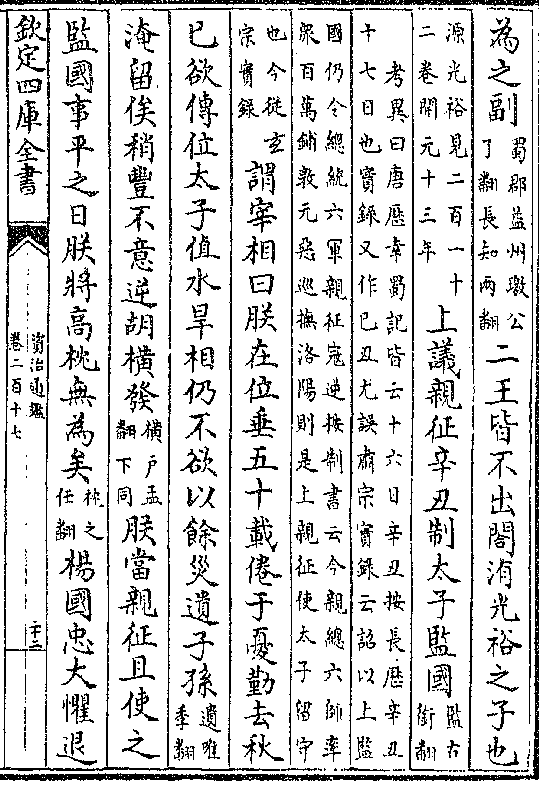 為之副
蜀郡益州璬公
了翻長知兩翻
二王皆不出閤洧光裕之子也
源光裕見二百一十
二卷開元十三年
上議親征辛丑制太子監國
監古
銜翻
考異曰唐歴幸蜀記皆云十六日辛丑按長歴辛丑
十七日也實録又作己丑尤誤肅宗實録云詔以上監
國仍令總統六軍親征寇逆按制書云今親總六師率
衆百萬鋪敦元惡巡撫洛陽則是上親征使太子留守
也今從玄
宗實錄
謂宰相曰朕在位垂五十載倦于憂勤去秋
已欲傳位太子值水旱相仍不欲以餘災遺子孫
遺唯
季翻
淹留俟稍豐不意逆胡橫發
橫戶孟
翻下同
朕當親征且使之
監國事平之日朕將高枕無為矣
枕之
任翻
楊國忠大懼退
欽定四庫全書
資治通鑑
卷二百十七
二十二